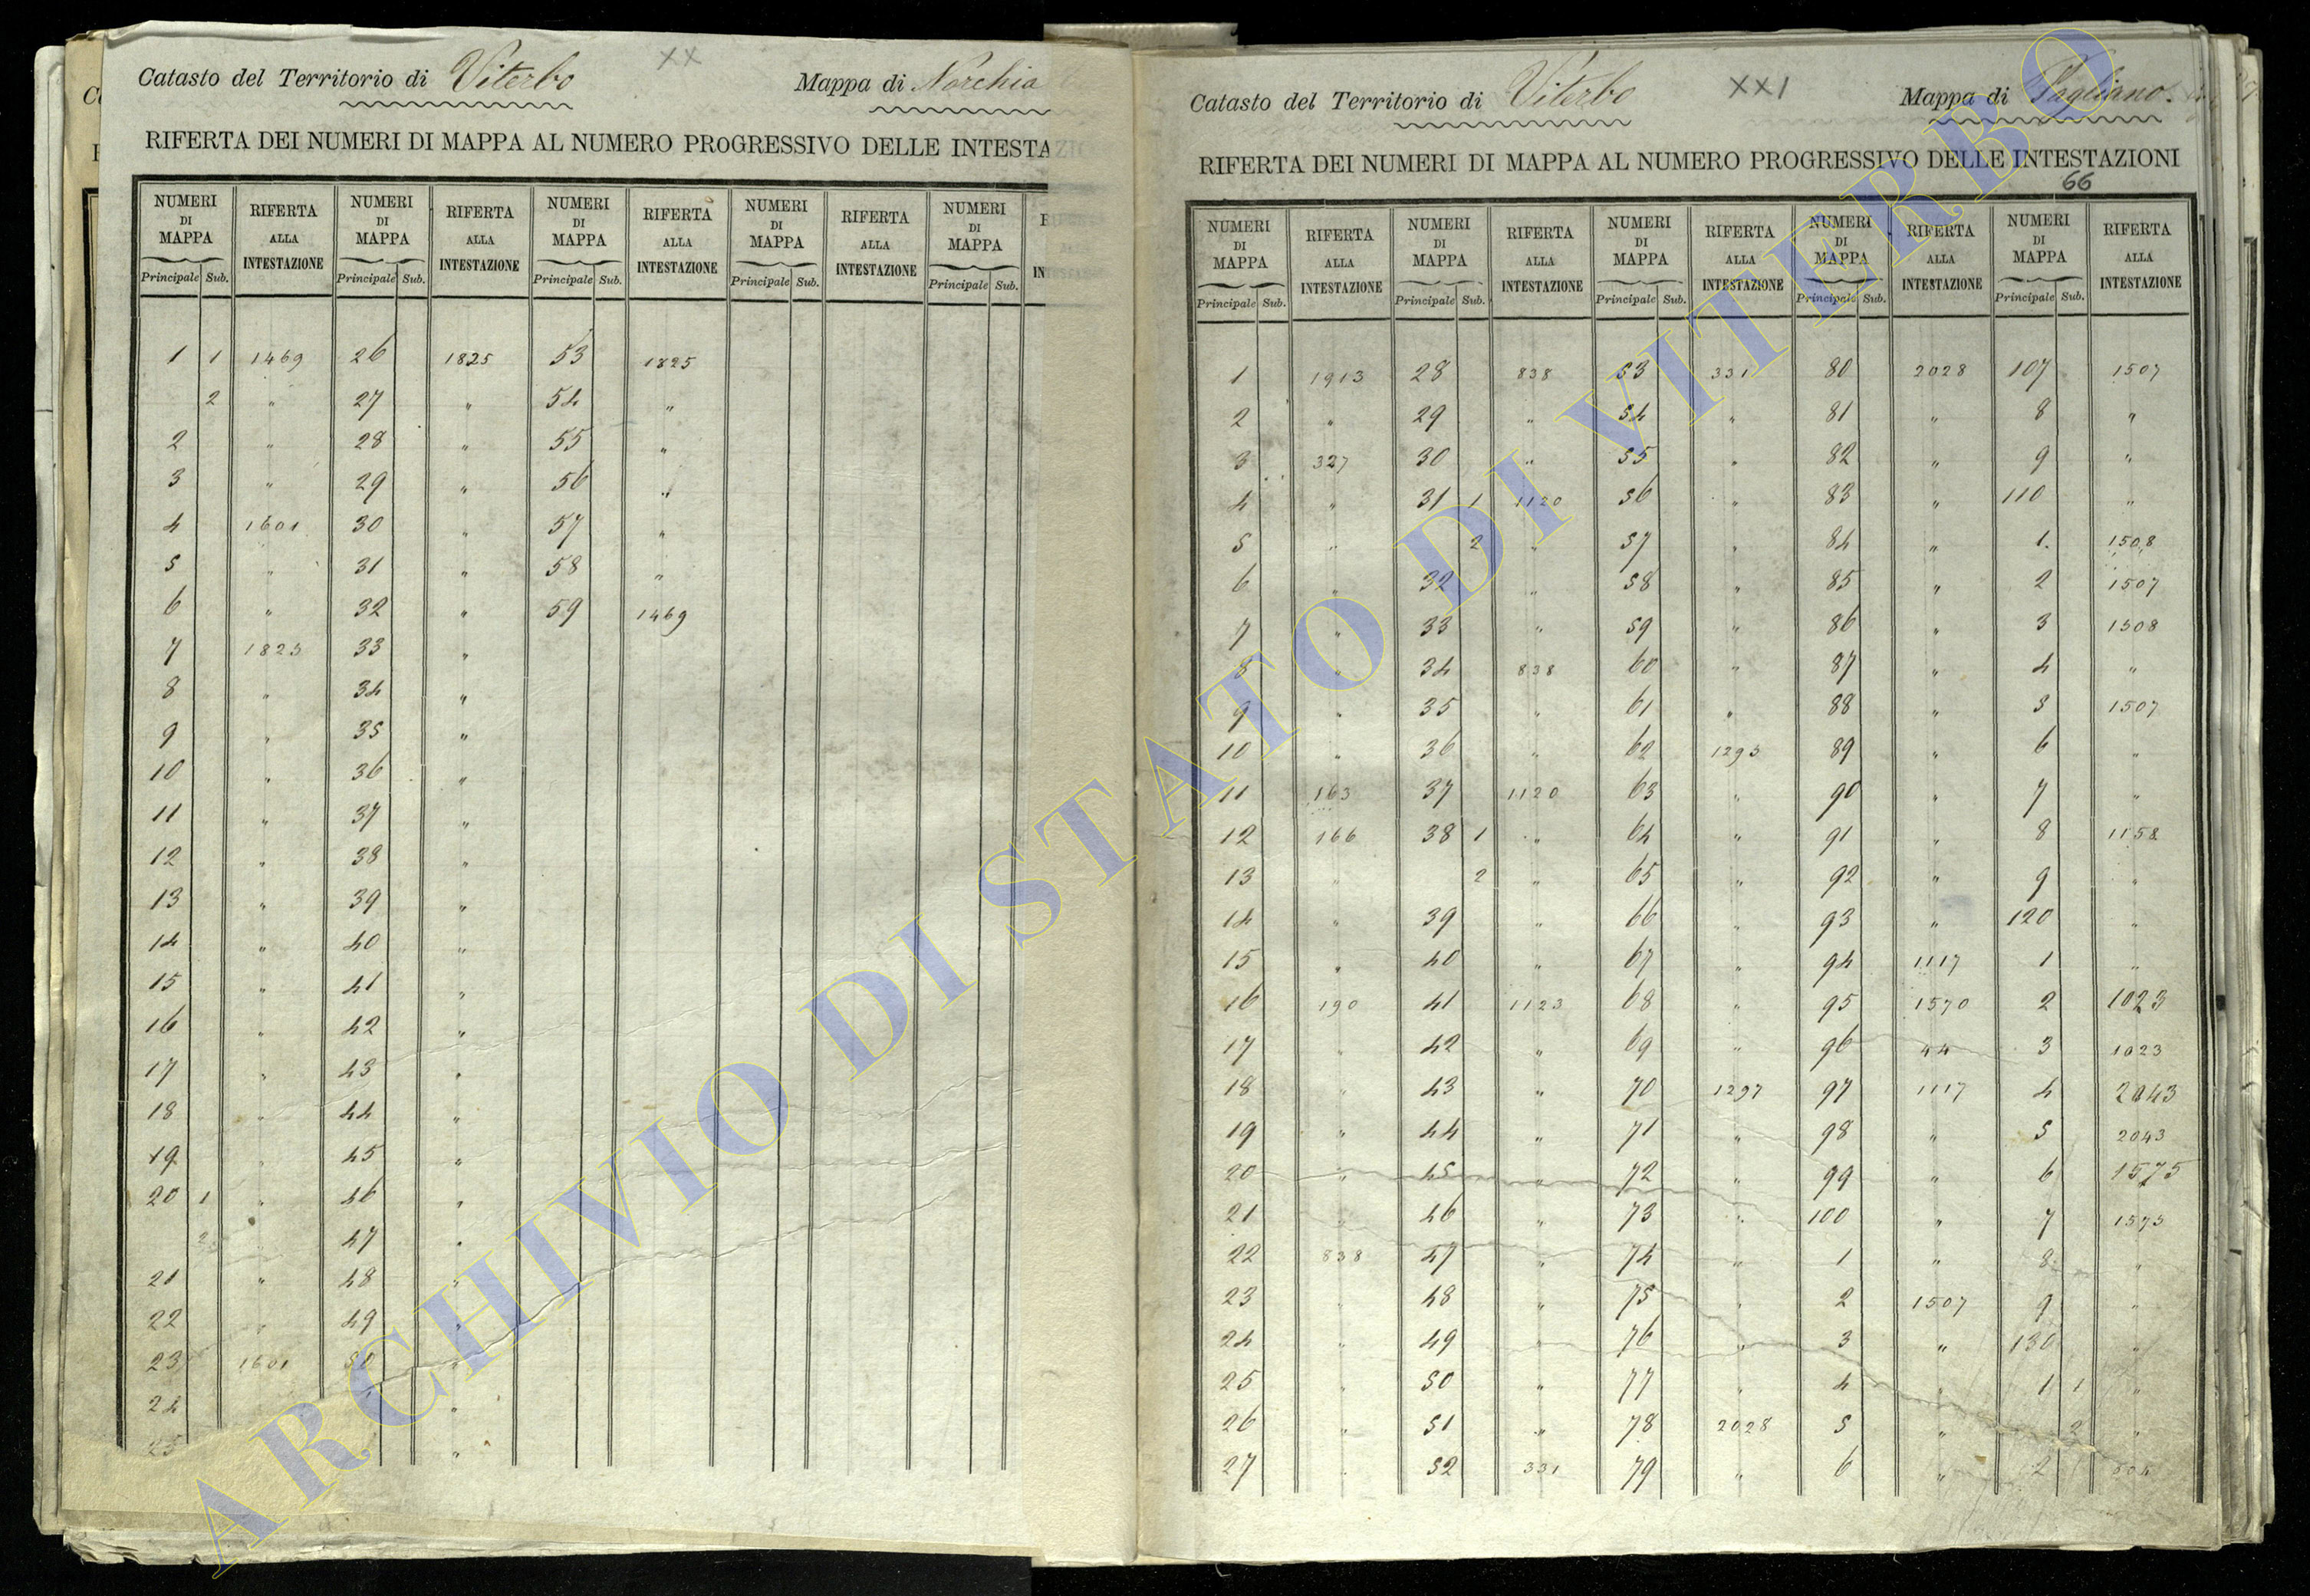 XX
Catasto del Territorio di Viterbo Mappa di Norchia
RIFERTA DEI NUMERI DI MAPPA AL NUMERO PROGRESSIVO DELLE INTESTA
NUMERI DI MAPPA RIFERTA ALLA INTESTAZIONE NUMERI DI MAPPA RIFERTA ALLA INTESTAZIONE NUMERI DI MAPPA RIFERTA ALLA INTESTAZIONE NUMERI DI MAPPA RIFERTA ALLA INTESTAZIONE NUMERI DI MAPPA
Principale Sub. Principale Sub. Principale Sub. Principale Sub. Principale Sub.
1 1 1469 26 1825 53 1825
2 " 27 " 54 "
2 " 28 " 55 "
3 " 29 " 56 "
4 1601 30 " 57 "
5 " 31 " 58 "
6 " 32 " 59 1469
7 1825 33 "
8 " 34 "
9 " 35 "
10 " 36 "
11 " 37 "
12 " 38 "
13 " 39 "
14 " 40 "
15 " 41 "
16 " 42 "
17 " 43 "
18 " 44 "
19 " 45 "
20 1 " 46 "
2 " 47 "
21 " 48 "
22 " 49 "
23 1601 50 "
24 "
25 "
XXI
Catasto del Territorio di Viterbo Mappa di Pagliano.
RIFERTA DEI NUMERI DI MAPPA AL NUMERO PROGRESSIVO DELLE INTESTAZIONI
66
NUMERI DI MAPPA RIFERTA ALLA INTESTAZIONE NUMERI DI MAPPA RIFERTA ALLA INTESTAZIONE NUMERI DI MAPPA RIFERTA ALLA INTESTAZIONE NUMERI DI MAPPA RIFERTA ALLA INTESTAZIONE NUMERI DI MAPPA RIFERTA ALLA INTESTAZIONE
Principale Sub. Principale Sub. Principale Sub. Principale Sub. Principale Sub.
1 1913 28 838 53 331 80 2028 107 1507
2 " 29 " 54 " 81 " 8 "
3 327 30 " 55 " 82 " 9 "
4 " 31 1 1120 56 " 83 " 110 "
5 " 2 " 57 " 84 " 1 1508
6 " 32 " 58 " 85 " 2 1507
7 " 33 " 59 " 86 " 3 1508
8 " 34 838 60 " 87 " 4 "
9 " 35 " 61 " 88 " 5 1507
10 " 36 " 62 1295 89 " 6 "
11 163 37 1120 63 " 90 " 7 "
12 166 38 1 " 64 " 91 " 8 1158
13 " 2 " 65 " 92 " 9 "
14 " 39 " 66 " 93 " 120 "
15 " 40 " 67 " 94 1117 1 "
16 190 41 1123 68 " 95 1570 2 1023
17 " 42 " 69 " 96 44 3 1023
18 " 43 " 70 1297 97 1117 4 2043
19 " 44 " 71 " 98 " 5 2043
20 " 45 " 72 " 99 " 6 1575
21 " 46 " 73 " 100 " 7 1575
22 838 47 " 74 " 1 " 8 "
23 " 48 " 75 " 2 1507 9 "
24 " 49 " 76 " 3 " 130 "
25 " 50 " 77 " 4 " 1 1 "
26 " 51 " 78 2028 5 " 2 "
27 " 52 331 79 " 6 " 2
ARCHIVIO DI STATO DI VITERBO